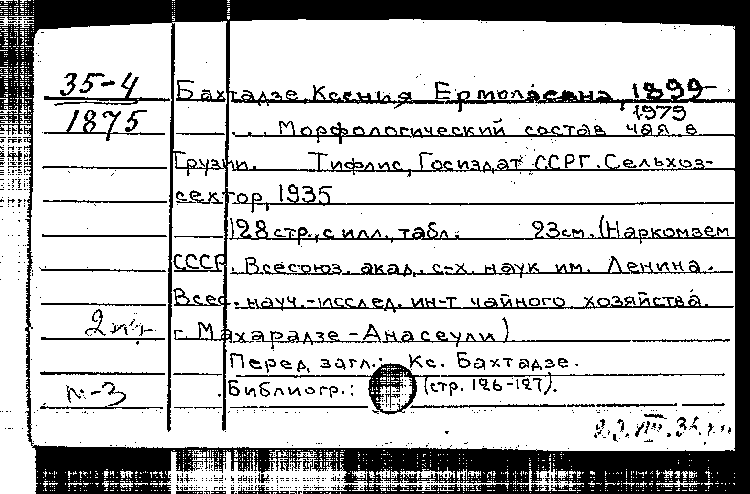 35-4 Бахтадзе, Ксения Ермолаевна, 1899-
1979
1875 ... Морфологический состав чая в
Грузии. Тифлис, Госиздат ССРГ. Сельхоз-
сектор, 1935
128 стр., с илл., табл. 23 см. (Наркомзем
СССР. Всесоюз. акад. с-х. наук им. Ленина.
Всес. науч.-исслед. ин-т чайного хозяйства.
г. Махарадзе-Анасеули)
Перед загл.: Кс. Бахтадзе.
Библиогр.: (стр. 126-127).